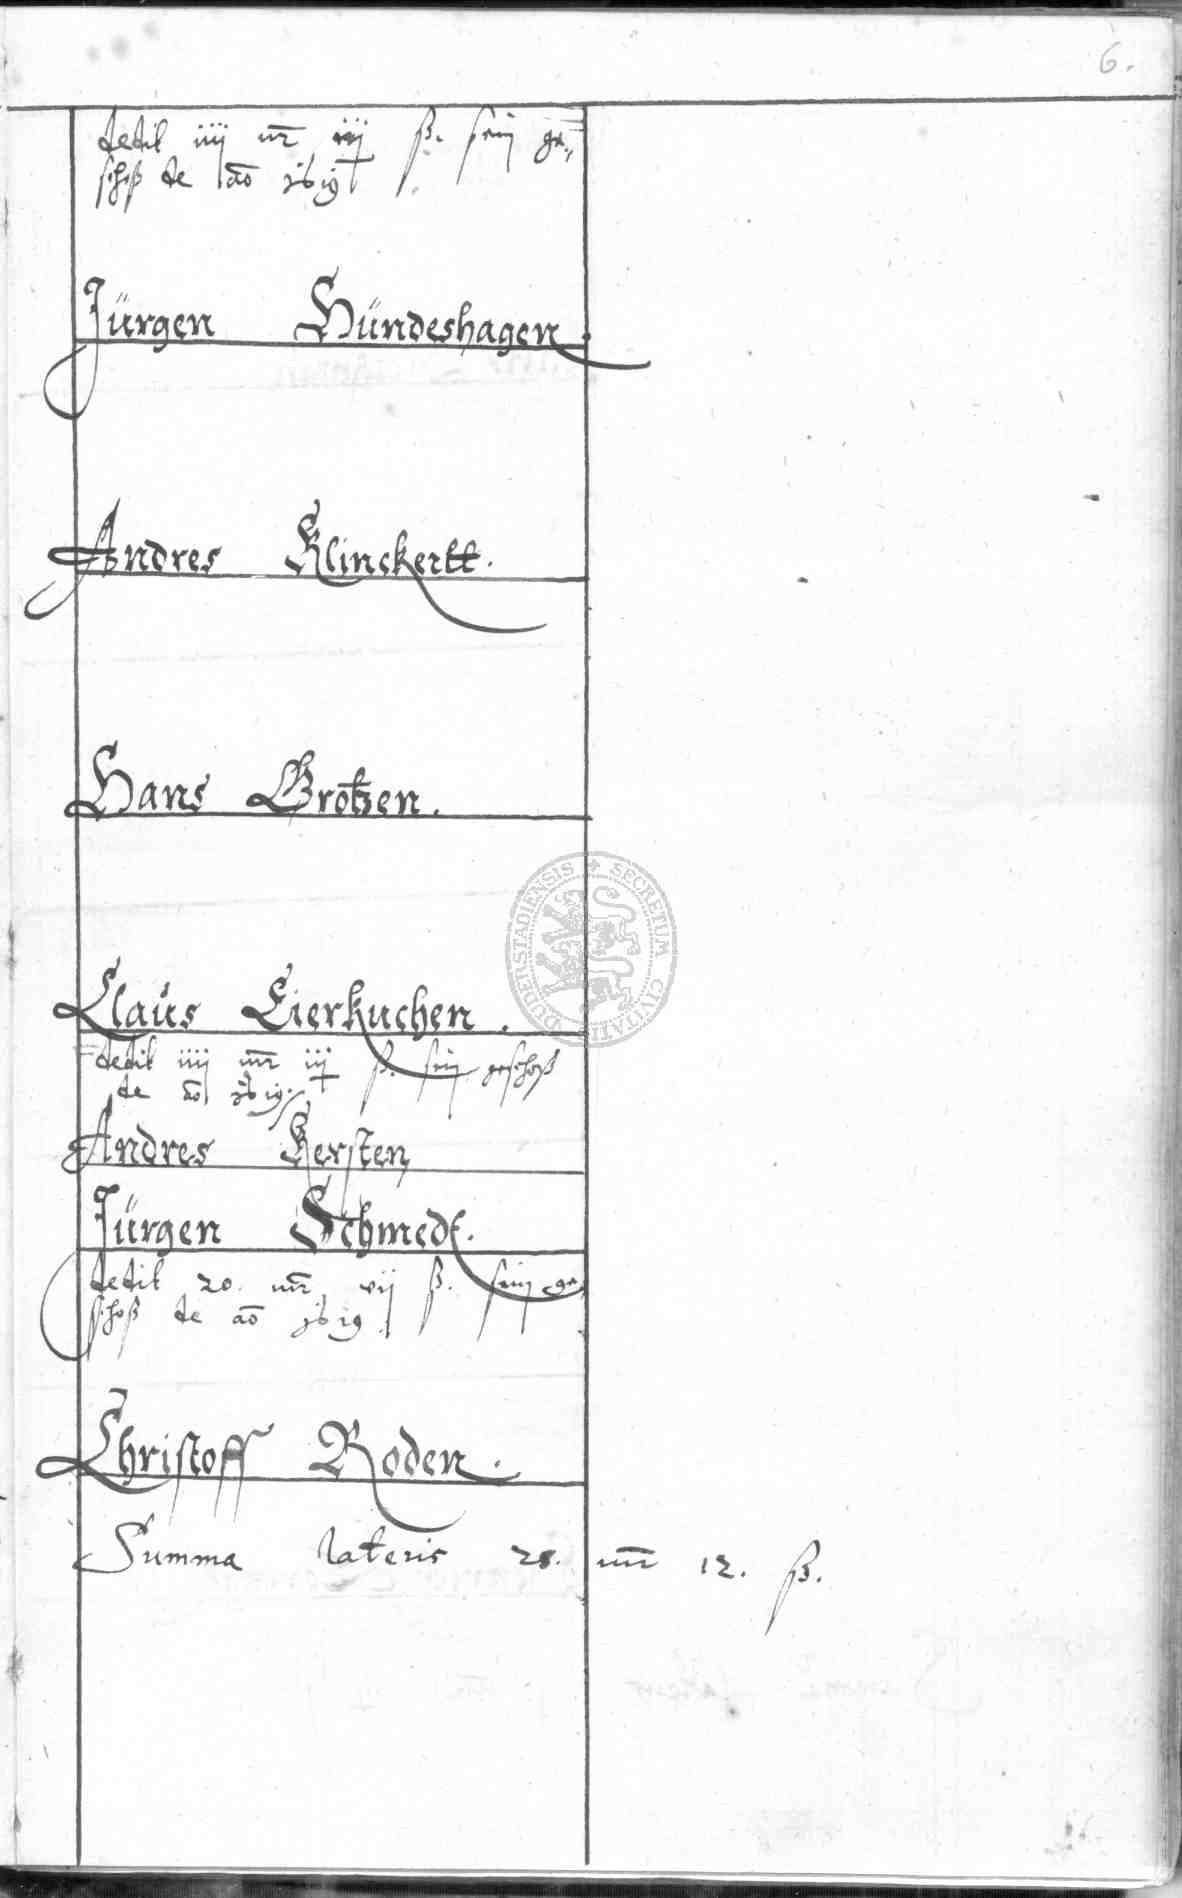 6.
dedit iiij mr iij ß. sein ge„
schoß de ao 1619
Jürgen Hündeshagen.
Andres Klinckertt.
Hans Grotzen.
Claus Eierkuchen.
dedit iiij mr iij ß. sein geschoß
de ao 1619.
Andres Kersten
Jürgen Schmedt.
dedit 20. mr vij ß. sein ge„
schoß de ao 1619
Christoff Roden.
Summa lateris 28. mr 12. ß.
SECRETUM CIVITATIS DUDERSTADIENSIS